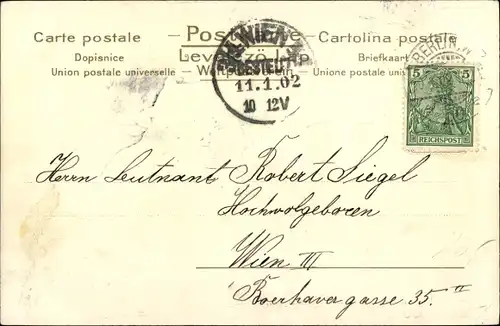 Carte postale
Postkarte
Cartolina postale
Dopisnice
Levelező-Lap
Briefkaart
Union postale universelle
Weltpostverein
Unione postale
WIEN
BESTELLT
11.1.02
10 12V
BERLIN
5 5
REICHSPOST
Herrn Leutnant Robert Siegel
Hochwolgeboren
Wien III
Boerhavergasse 35.II